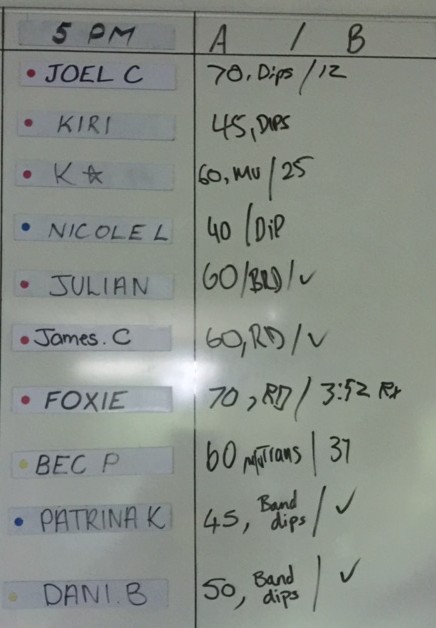 5 PM A / B
JOEL C 70, Dips / 12
KIRI 45, DIPS
K☆ 60, MU / 25
NICOLE L 40 / DiP
JULIAN 60/BRD/✓
James. C 60, RD/✓
FOXIE 70, RD / 3:52 Rx
BEC P 60 Trans | 37
PATRINA K 45, Band dips / ✓
DANI.B 50, Band dips / ✓